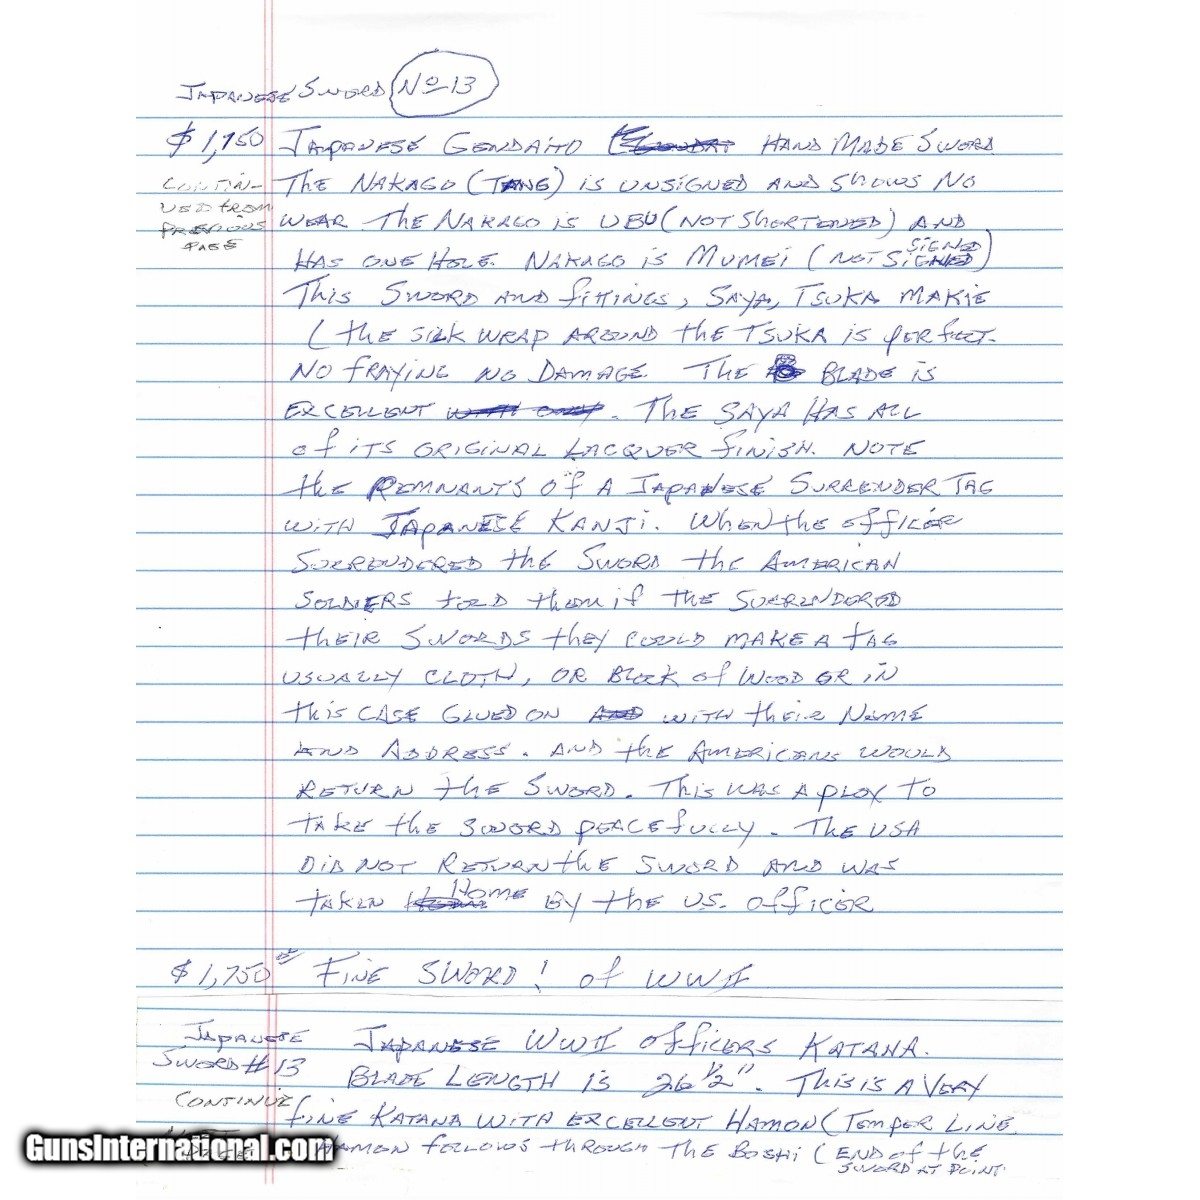 JAPANESE SWORD No 13
$1,750 JAPANESE GENDAITO HAND MADE SWORD
CONTIN- THE NAKAGO (TANG) IS UNSIGNED AND SHOWS NO
UED FROM
PREVIOUS WEAR THE NAKAGO IS UBU (NOT SHORTENED) AND
PAGE
HAS ONE HOLE. NAKAGO IS MUMEI (NOT SIGNED)
THIS SWORD AND FITTINGS, SAYA, TSUKA MAKIE
(THE SILK WRAP AROUND THE TSUKA IS PERFECT.
NO FRAYING NO DAMAGE THE BLADE IS
EXCELLENT . THE SAYA HAS ALL
OF ITS ORIGINAL LACQUER FINISH. NOTE
THE REMNANTS OF A JAPANESE SURRENDER TAG
WITH JAPANESE KANJI. WHEN THE OFFICER
SURRENDERED THE SWORD THE AMERICAN
SOLDIERS TOLD THEM IF THE SURRENDERED
THEIR SWORDS THEY COULD MAKE A TAG
USUALLY CLOTH, OR BLOCK OF WOOD OR IN
THIS CASE GLUED ON WITH THEIR NAME
AND ADDRESS. AND THE AMERICANS WOULD
RETURN THE SWORD. THIS WAS A PLOY TO
TAKE THE SWORD PEACEFULLY. THE USA
DID NOT RETURN THE SWORD AND WAS
TAKEN HOME BY THE US. OFFICER
$1,750 FINE SWORD! OF WWII
JAPANESE JAPANESE WWII OFFICERS KATANA.
SWORD #13 BLADE LENGTH IS 26 1/2". THIS IS A VERY
CONTINUE FINE KATANA WITH EXCELLENT HAMON (TEMPER LINE.
HAMON FOLLOWS THROUGH THE BOSHI (END OF THE
SWORD AT POINT
GunsInternational.com